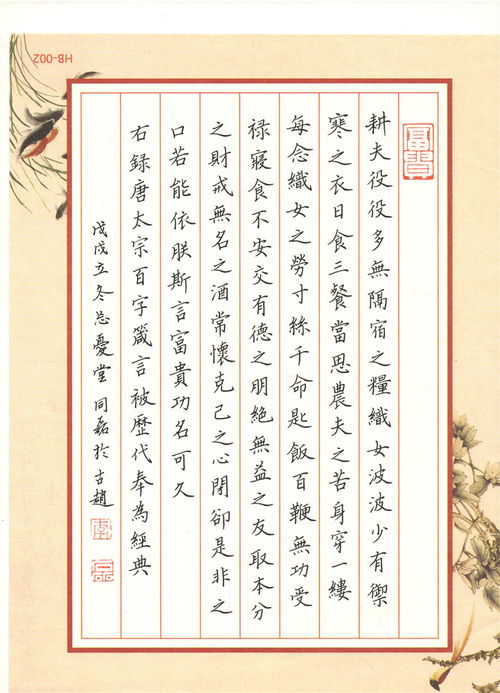 HB-002
富貴
耕夫役役多無隔宿之糧織女波波少有禦
寒之衣日食三餐當思農夫之苦身穿一縷
每念織女之勞寸絲千命匙飯百鞭無功受
祿寢食不安交有德之朋絶無益之友取本分
之財戒無名之酒常懷克己之心閉卻是非之
口若能依朕斯言富貴功名可久
右録唐太宗百字箴言被歷代奉為經典
戊戌立冬忘憂堂同磊於古趙